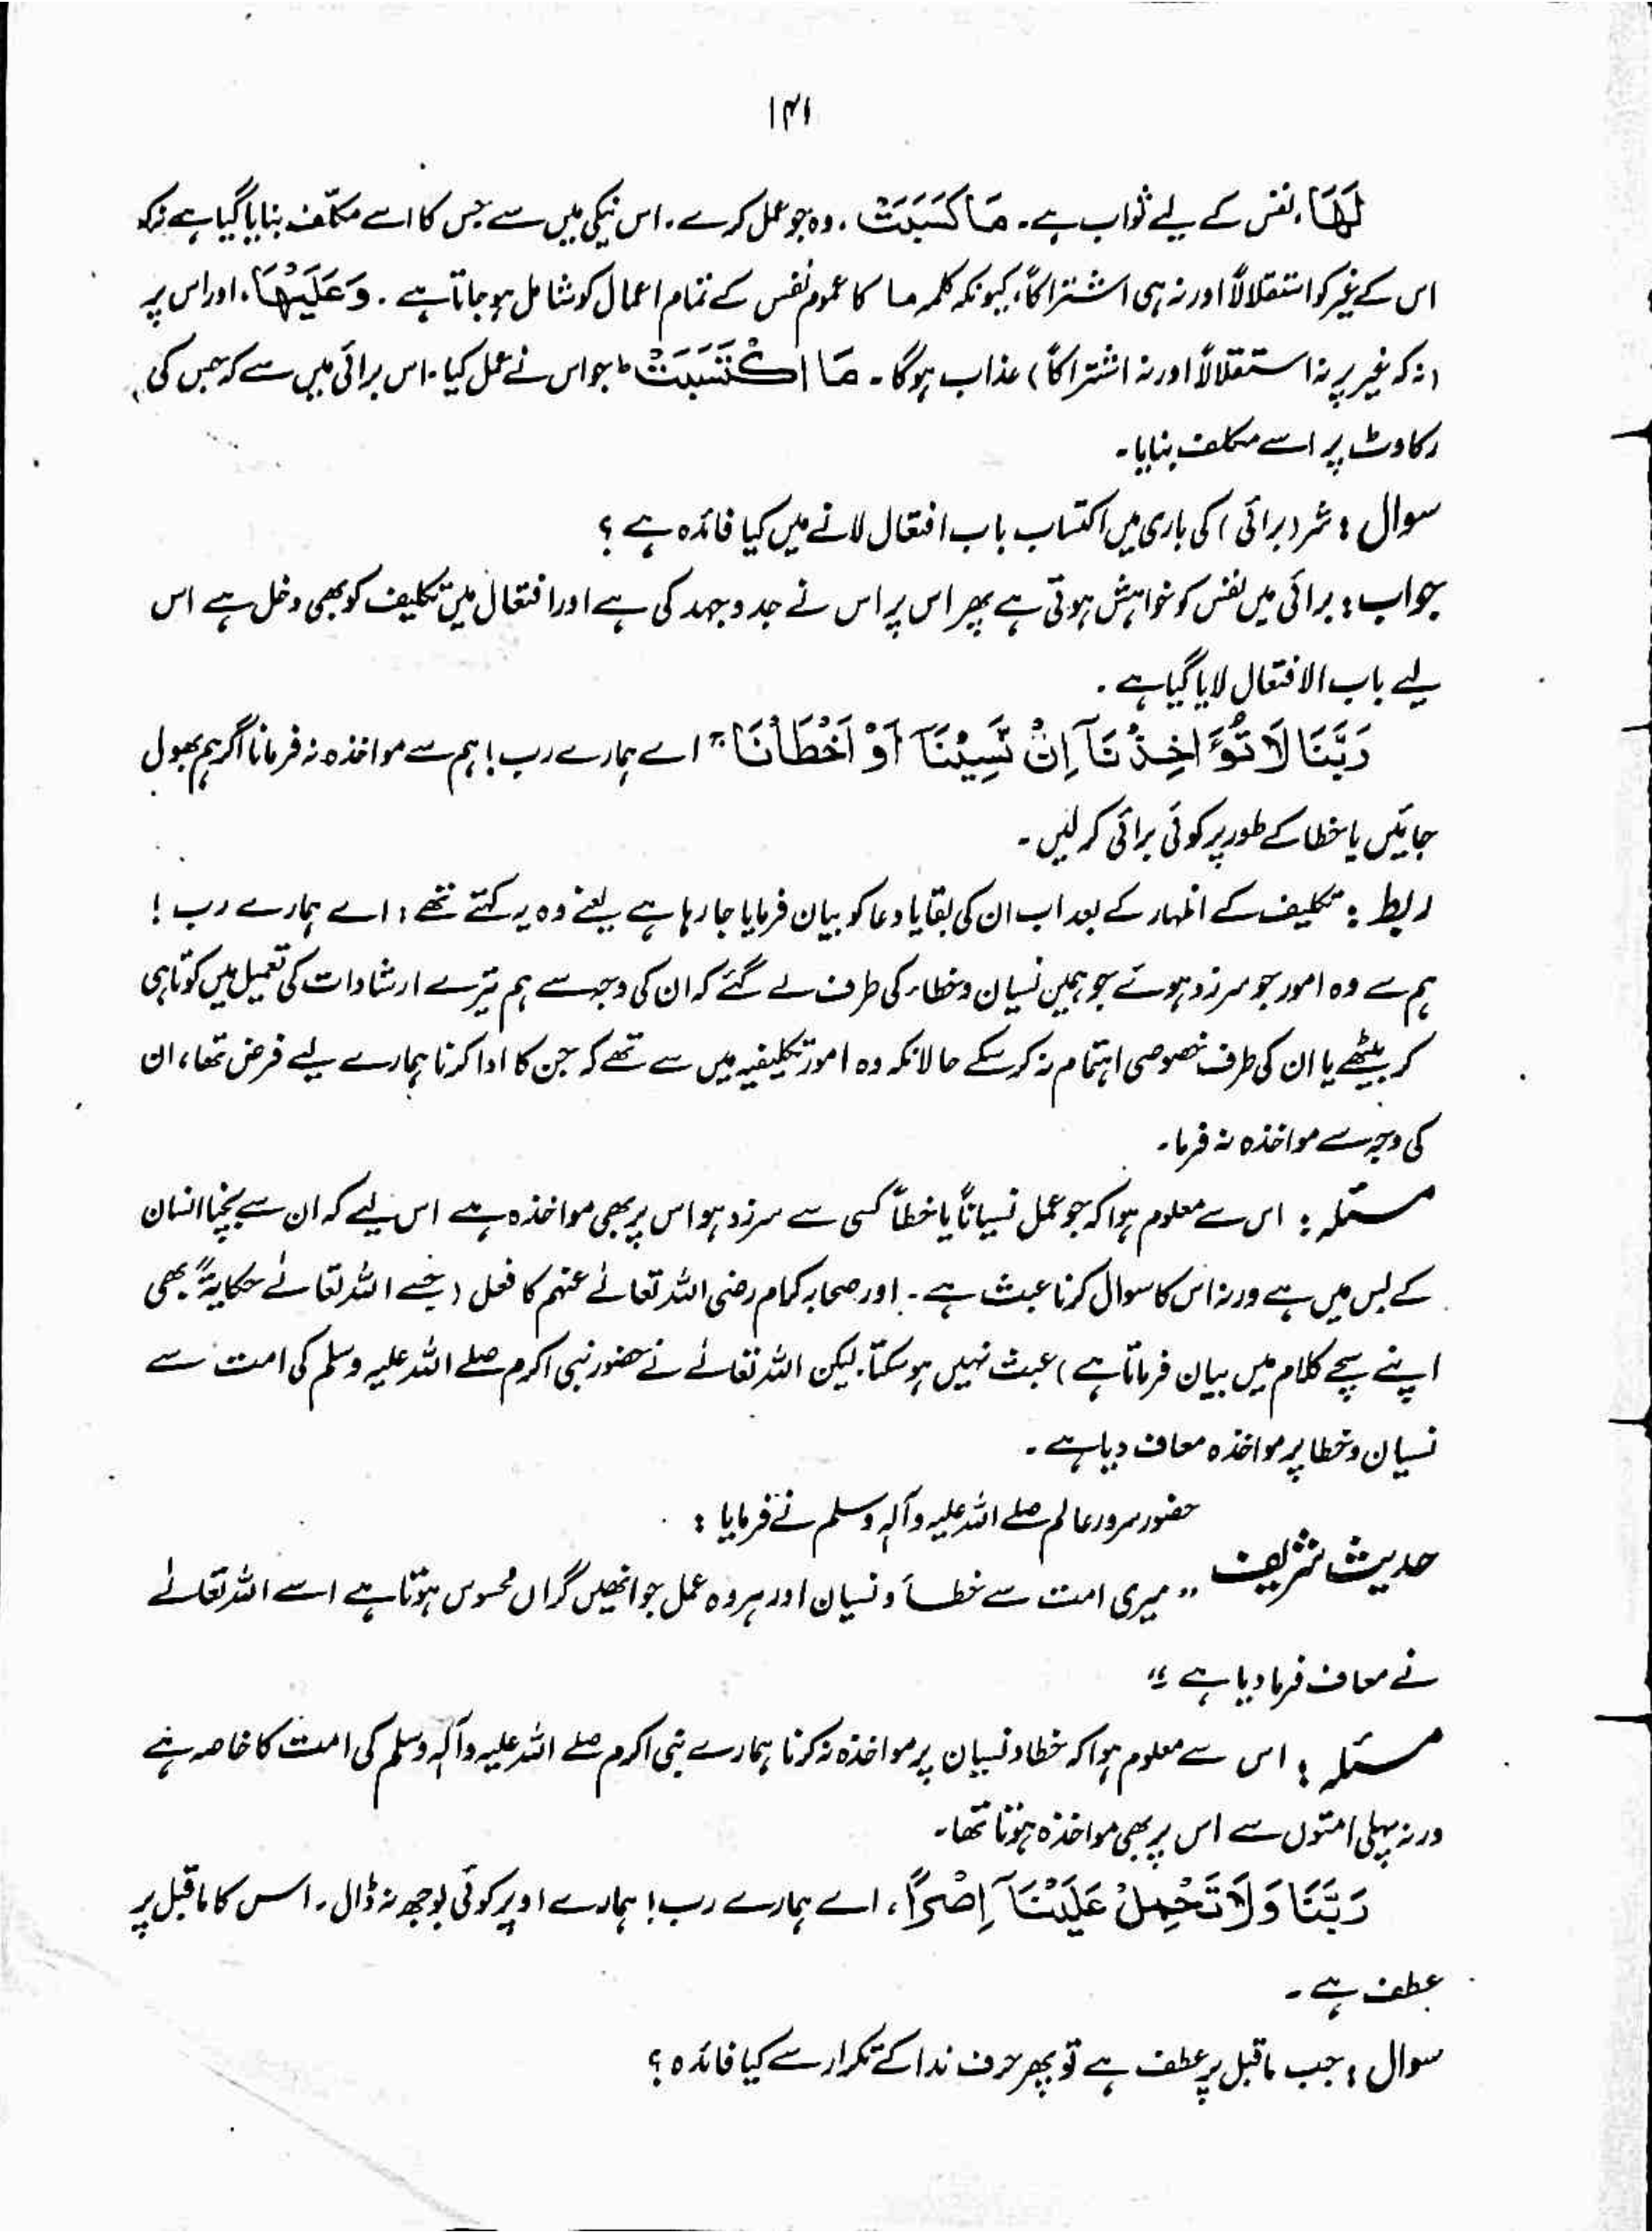 ۱۴۱
لَهَا، نفس کے لیے ثواب ہے۔ مَا كَسَبَتْ، وہ جو عمل کرے۔ اس نیکی میں سے جس کا اسے مکلّف بنایا گیا ہے نہ کہ
اس کے غیر کو استقلالاً اور نہ ہی اشتراکاً، کیونکہ کلمہ ما کا عموم نفس کے تمام اعمال کو شامل ہو جاتا ہے۔ وَعَلَيْهَا، اور اس پر
(نہ کہ غیر پر نہ استقلالاً اور نہ اشتراکاً) عذاب ہوگا۔ مَا اكْتَسَبَتْ ط جو اس نے عمل کیا۔ اس برائی میں سے کہ جس کی
رکاوٹ پر اسے مکلف بنایا۔
سوال : شر (برائی) کی باری میں اکتساب باب افتعال لانے میں کیا فائدہ ہے ؟
جواب : برائی میں نفس کو خواہش ہوتی ہے پھر اس پر اس نے جد و جہد کی ہے اور افتعال میں تکلیف کو بھی دخل ہے اس
لیے باب الافتعال لایا گیا ہے۔
رَبَّنَا لَا تُؤَاخِذْنَآ اِنْ نَّسِيْنَآ اَوْ اَخْطَاْنَا ج اے ہمارے رب! ہم سے مواخذہ نہ فرمانا اگر ہم بھول
جائیں یا خطا کے طور پر کوئی برائی کر لیں۔
ربط : تکلیف کے اظہار کے بعد اب ان کی بقایا دعا کو بیان فرمایا جا رہا ہے یعنے وہ یہ کہتے تھے : اے ہمارے رب !
ہم سے وہ امور جو سرزد ہوئے جو ہمیں نسیان و خطاء کی طرف لے گئے کہ ان کی وجہ سے ہم تیرے ارشادات کی تعمیل میں کوتاہی
کر بیٹھے یا ان کی طرف خصوصی اہتمام نہ کر سکے حالانکہ وہ امور تکلیفیہ میں سے تھے کہ جن کا ادا کرنا ہمارے لیے فرض تھا، ان
کی وجہ سے مواخذہ نہ فرما۔
مسئلہ : اس سے معلوم ہوا کہ جو عمل نسیاناً یا خطاً کسی سے سرزد ہو اس پر بھی مواخذہ ہے اس لیے کہ ان سے بچنا انسان
کے بس میں ہے ورنہ اس کا سوال کرنا عبث ہے۔ اور صحابہ کرام رضی اللہ تعالےٰ عنہم کا فعل (جسے اللہ تعالےٰ حکایۃً بھی
اپنے سچے کلام میں بیان فرماتا ہے) عبث نہیں ہو سکتا۔ لیکن اللہ تعالےٰ نے حضور نبی اکرم صلے اللہ علیہ وسلم کی امت سے
نسیان و خطا پر مواخذہ معاف دیا ہے۔
حضور سرور عالم صلے اللہ علیہ وآلہ وسلم نے فرمایا :
حدیث شریف
” میری امت سے خطأ و نسیان اور ہر وہ عمل جو انھیں گراں محسوس ہوتا ہے اسے اللہ تعالےٰ
نے معاف فرما دیا ہے “
مسئلہ : اس سے معلوم ہوا کہ خطا و نسیان پر مواخذہ نہ کرنا ہمارے نبی اکرم صلے اللہ علیہ وآلہ وسلم کی امت کا خاصہ ہے
ورنہ پہلی امتوں سے اس پر بھی مواخذہ ہوتا تھا۔
رَبَّنَا وَلَا تَحْمِلْ عَلَيْنَآ اِصْرًا، اے ہمارے رب! ہمارے اوپر کوئی بوجھ نہ ڈال۔ اس کا ماقبل پر
عطف ہے۔
سوال : جب ماقبل پر عطف ہے تو پھر حرف ندا کے تکرار سے کیا فائدہ ؟